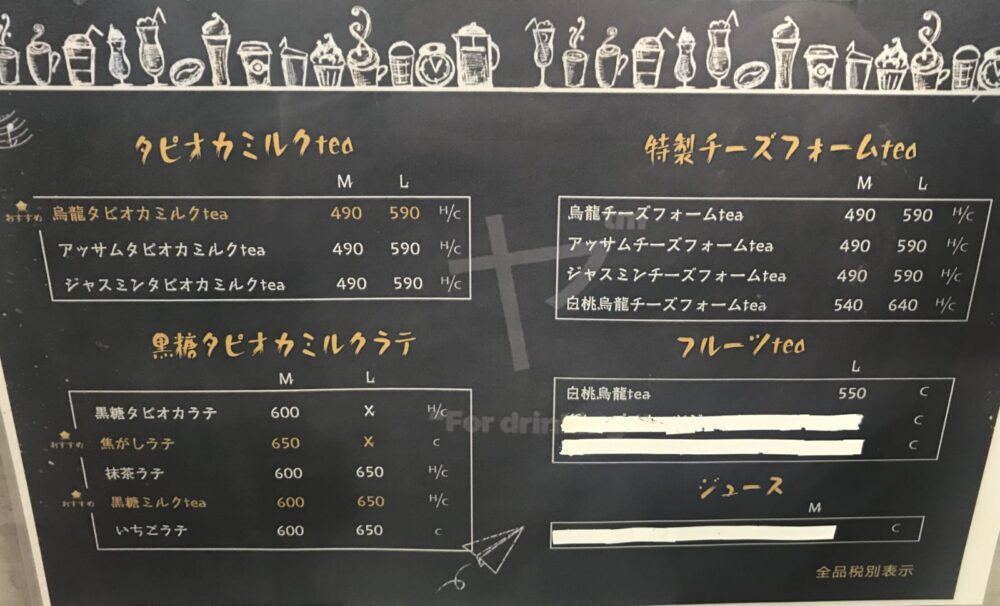 タピオカミルクtea
M L
おすすめ 烏龍タピオカミルクtea 490 590 H/c
アッサムタピオカミルクtea 490 590 H/c
ジャスミンタピオカミルクtea 490 590 H/c
黒糖タピオカミルクラテ
M L
黒糖タピオカラテ 600 x H/c
おすすめ 焦がしラテ 650 x c
抹茶ラテ 600 650 H/c
おすすめ 黒糖ミルクtea 600 650 H/c
いちごラテ 600 650 c
特製チーズフォームtea
M L
烏龍チーズフォームtea 490 590 H/c
アッサムチーズフォームtea 490 590 H/c
ジャスミンチーズフォームtea 490 590 H/c
白桃烏龍チーズフォームtea 540 640 H/c
フルーツtea
L
白桃烏龍tea 550 C
C
C
ジュース
M
C
全品税別表示
For